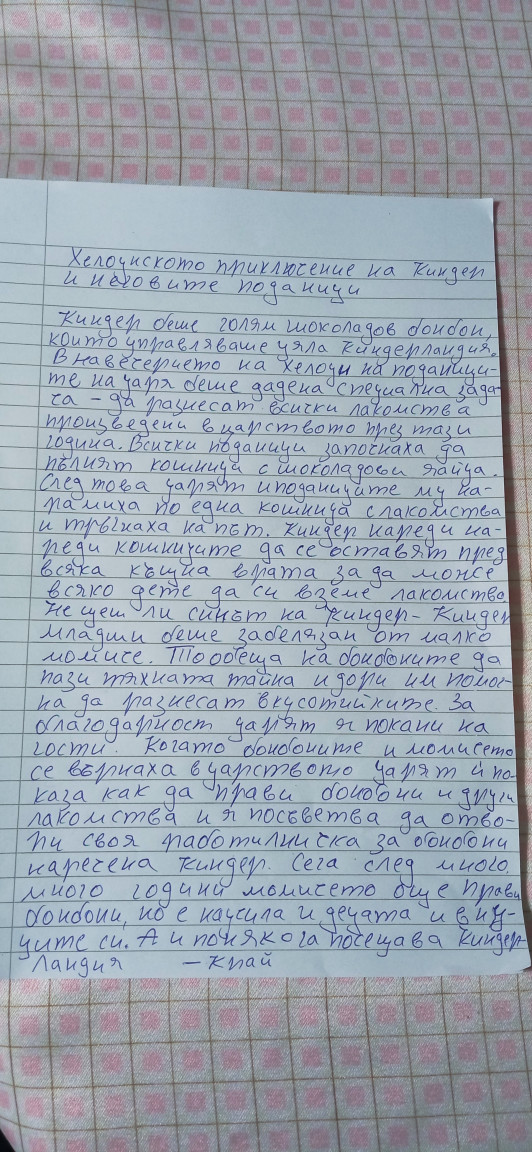 Хелоуиското приключение на Киндер
и неговите поданици
Киндер беше голям шоколадов бонбон,
който управляваше цяла Киндерландия.
В навечерието на Хелоуи на поданици-
те на царя беше дадена специална зада-
ча - да разнесат всички лакомства
произведени в царството през тази
година. Всички поданици започнаха да
пълнят кошници с шоколадови яйца.
След това царят и поданиците му на-
рамиха по една кошница с лакомства
и тръгнаха на път. Киндер нареди на-
реди кошниците да се оставят пред
всяка къщна врата за да може
всяко дете да си вземе лакомство.
Не щеш ли синът на Киндер - Киндер
младши беше забелязан от малко
момиче. То обеща на бонбоните да
пази тяхната тайна и дори им помог-
на да разнесат вкусотийките. За
благодарност царят я покани на
гости. Когато бонбоните и момичето
се върнаха в царството царят ѝ по-
каза как да прави бонбони и други
лакомства и я посъветва да отво-
ри своя работилничка за бонбони
наречена Киндер. Сега след много,
много години момичето още прави
бонбони, но е научила и децата и вну-
ците си. А и понякога посещава Киндер-
ландия - Край